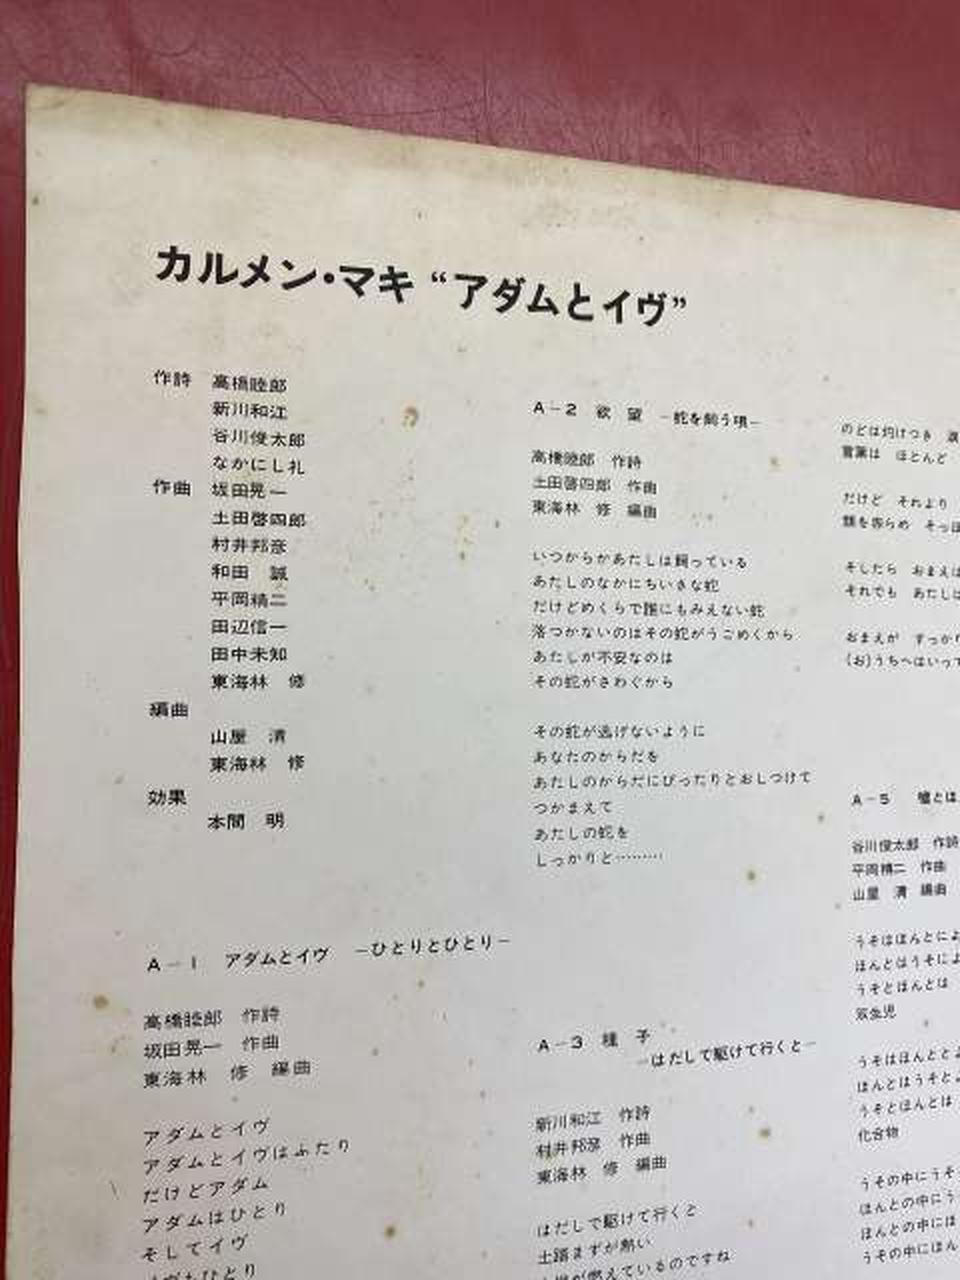 カルメン・マキ “アダムとイヴ”
作詩 高橋睦郎
新川和江
谷川俊太郎
なかにし礼
作曲 坂田晃一
土田啓四郎
村井邦彦
和田 誠
平岡精二
田辺信一
田中未知
東海林 修
編曲
山屋 清
東海林 修
効果
本間 明
A－1 アダムとイヴ －ひとりとひとり－
高橋睦郎 作詩
坂田晃一 作曲
東海林 修 編曲
アダムとイヴ
アダムとイヴはふたり
だけどアダム
アダムはひとり
そしてイヴ
イヴもひとり
A－2 欲 望 －蛇を飼う唄－
高橋睦郎 作詩
土田啓四郎 作曲
東海林 修 編曲
いつからかあたしは飼っている
あたしのなかにちいさな蛇
だけどめくらで誰にもみえない蛇
落つかないのはその蛇がうごめくから
あたしが不安なのは
その蛇がさわぐから
その蛇が逃げないように
あなたのからだを
あたしのからだにぴったりとおしつけて
つかまえて
あたしの蛇を
しっかりと………
A－3 種 子
－はだしで駆けて行くと－
新川和江 作詩
村井邦彦 作曲
東海林 修 編曲
はだしで駆けて行くと
土踏まずが熱い
が燃えているのですね
のどは灼けつき
言葉は ほとんど
だけど それより
頬を赤らめ そっぽ
そしたら おまえは
それでも あたしは
おまえが すっかり
(お)うちへはいって
A－5 嘘とほ
谷川俊太郎 作詩
平岡精二 作曲
山屋 清 編曲
うそはほんとによ
ほんとはうそによ
うそとほんとは
双生児
うそはほんととよ
ほんとはうそとよ
うそとほんとは
化合物
うその中にうそ
ほんとの中にう
ほんとの中には
うその中にほん